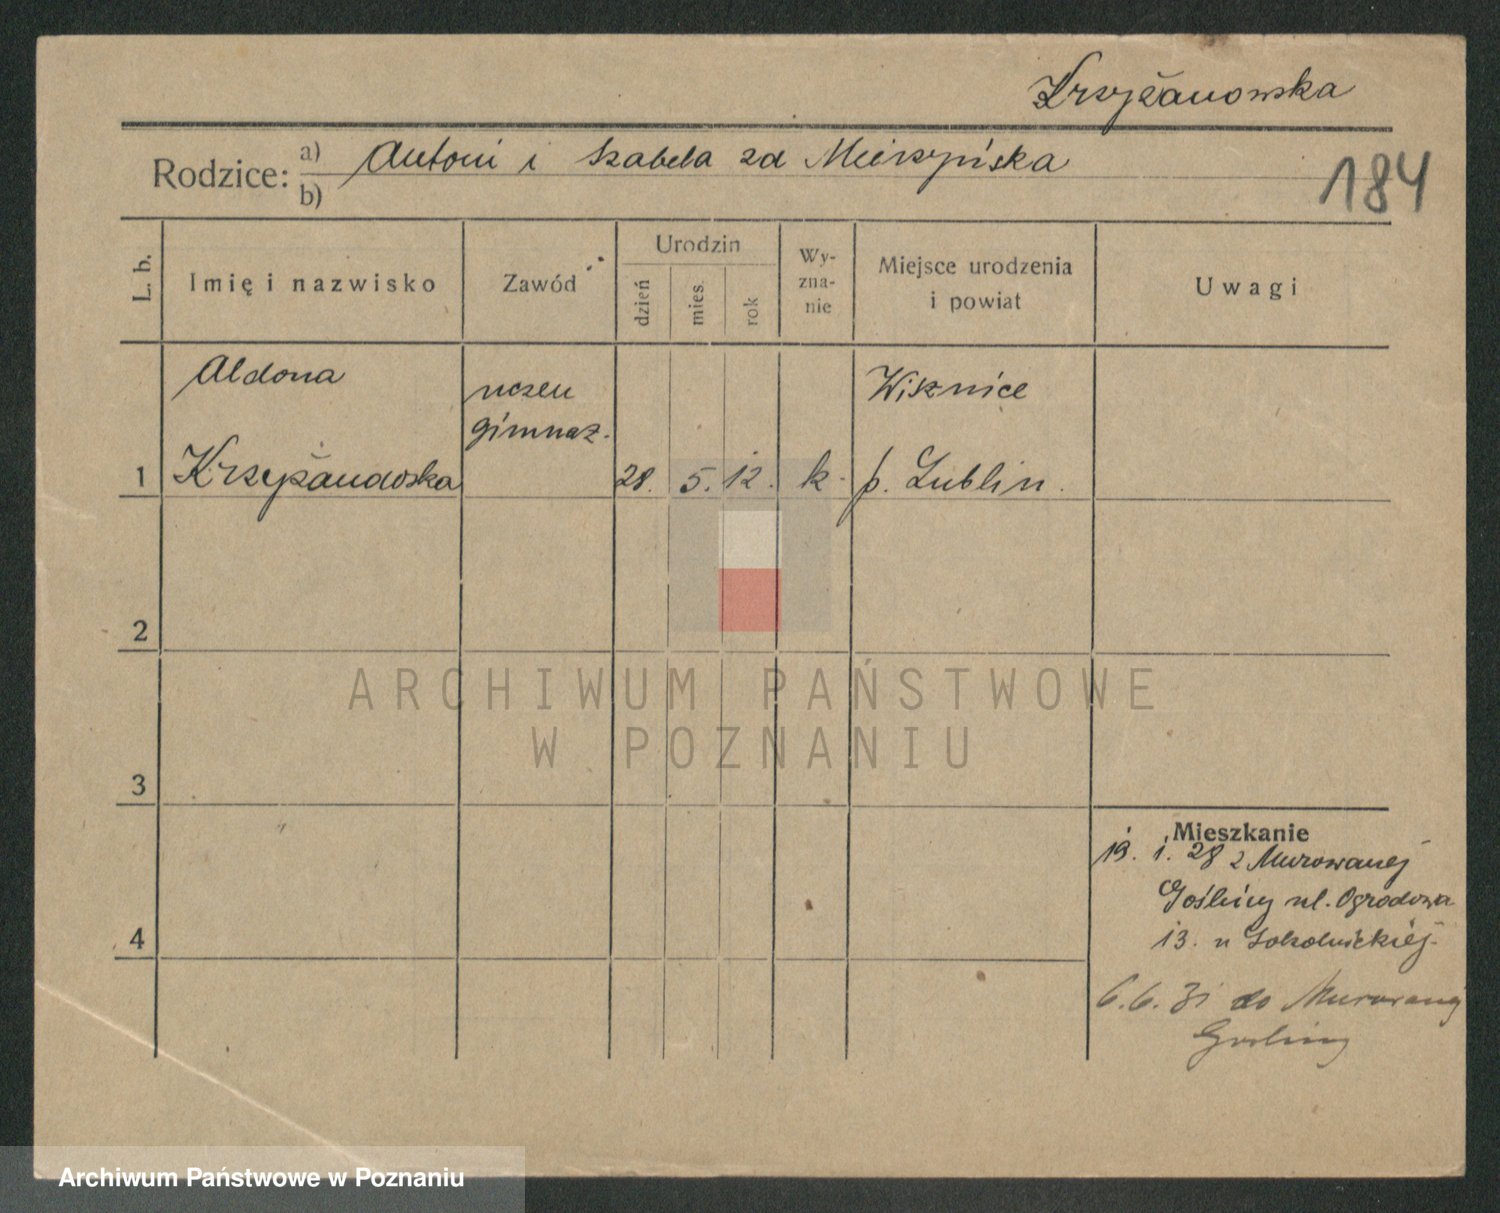 Krzyżanowska
Rodzice: a) Antoni i Izabela zd
b)
184
L. b.
Imię i nazwisko
Zawód
Urodzin
dzień
mies.
rok
Wy-
zna-
nie
Miejsce urodzenia
i powiat
Uwagi
Aldona
uczeń
Wisznice
gimnaz.
1 Krzyżanowska 28. 5. 12. k. p. Lublin.
2
ARCHIWUM PAŃSTWOWE
W POZNANIU
3
Mieszkanie
19. 1. 28 z Murowanej
Gośliny ul. Ogrodowa
13. u Sokolnickiej
4
6.6.31 do Murowanej
Gośliny
Archiwum Państwowe w Poznaniu